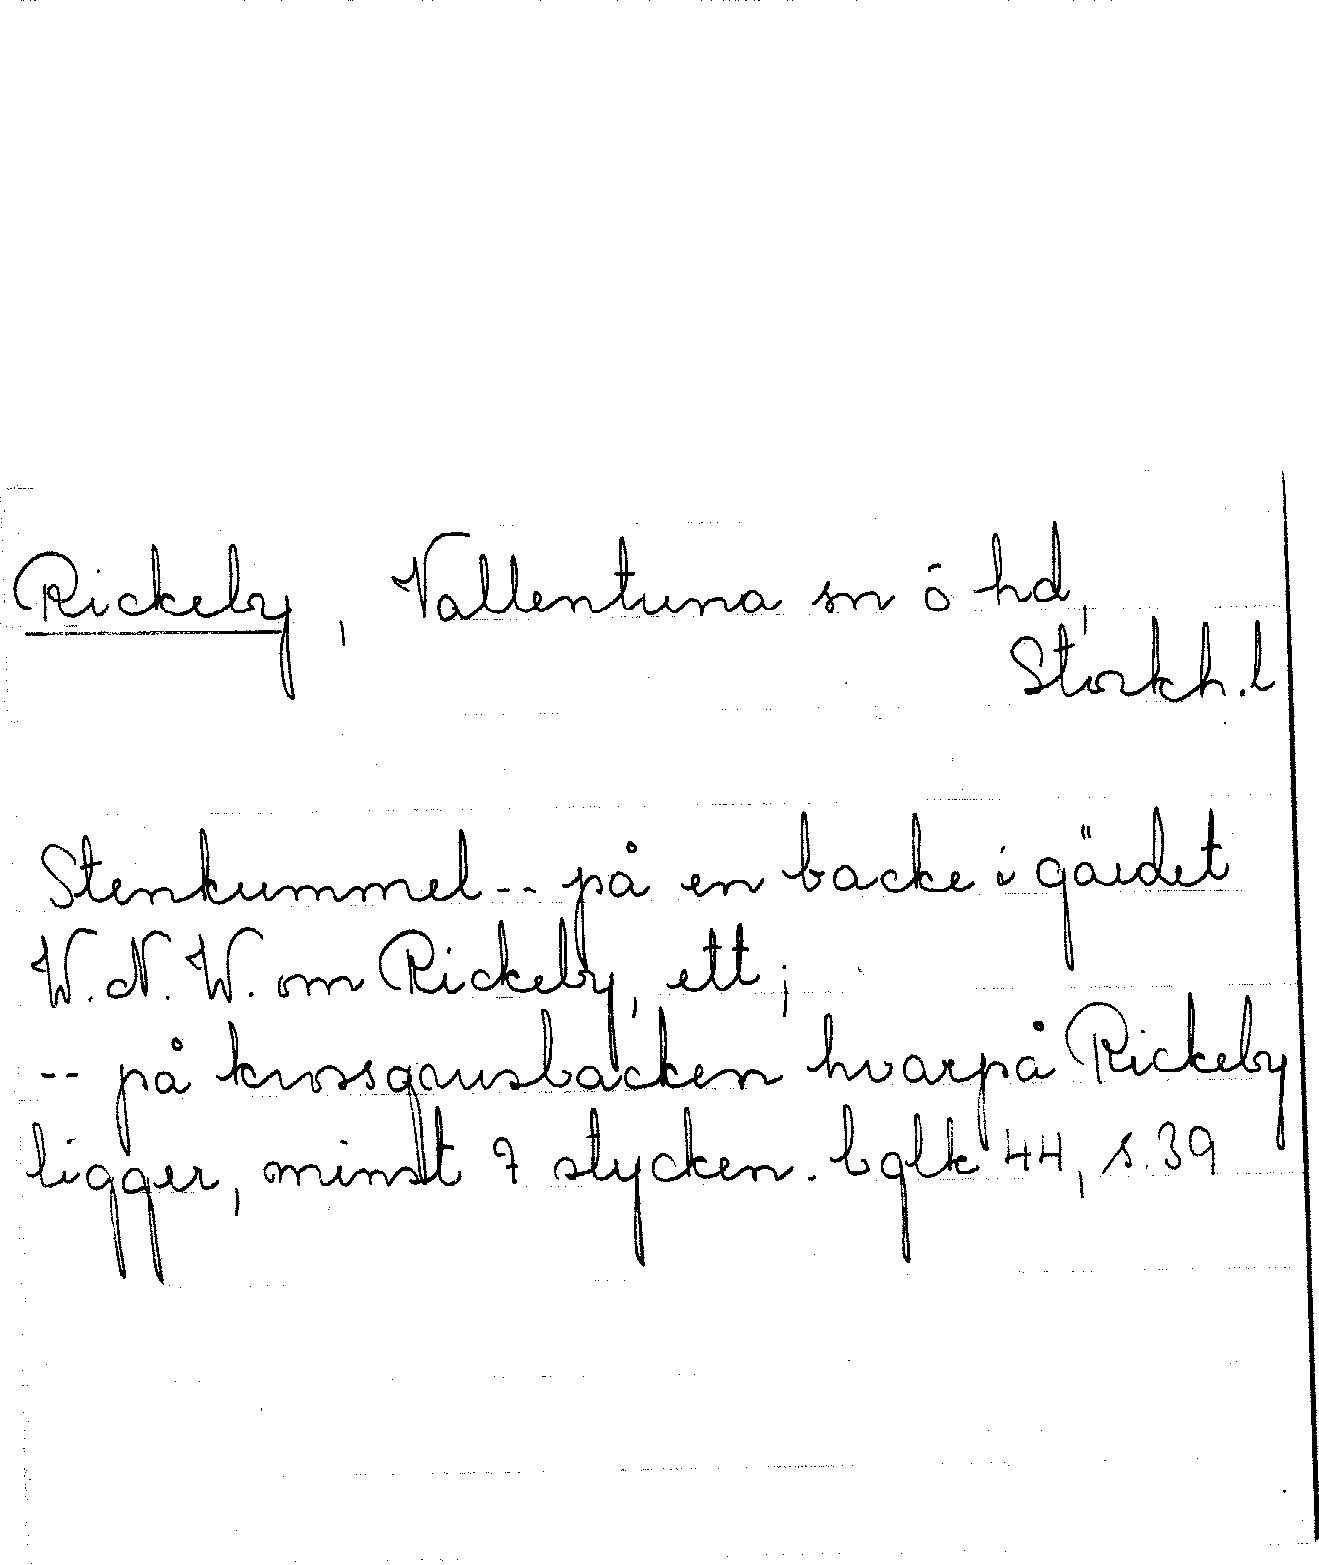 Rickeby, Vallentuna sn ö hd,
Stockh.l
Stenkummel -- på en backe i gärdet
W.N.W. om Rickeby, ett;
-- på krossgrusbacken hvarpå Rickeby
ligger, minst 7 stycken. bglk 44, s.39